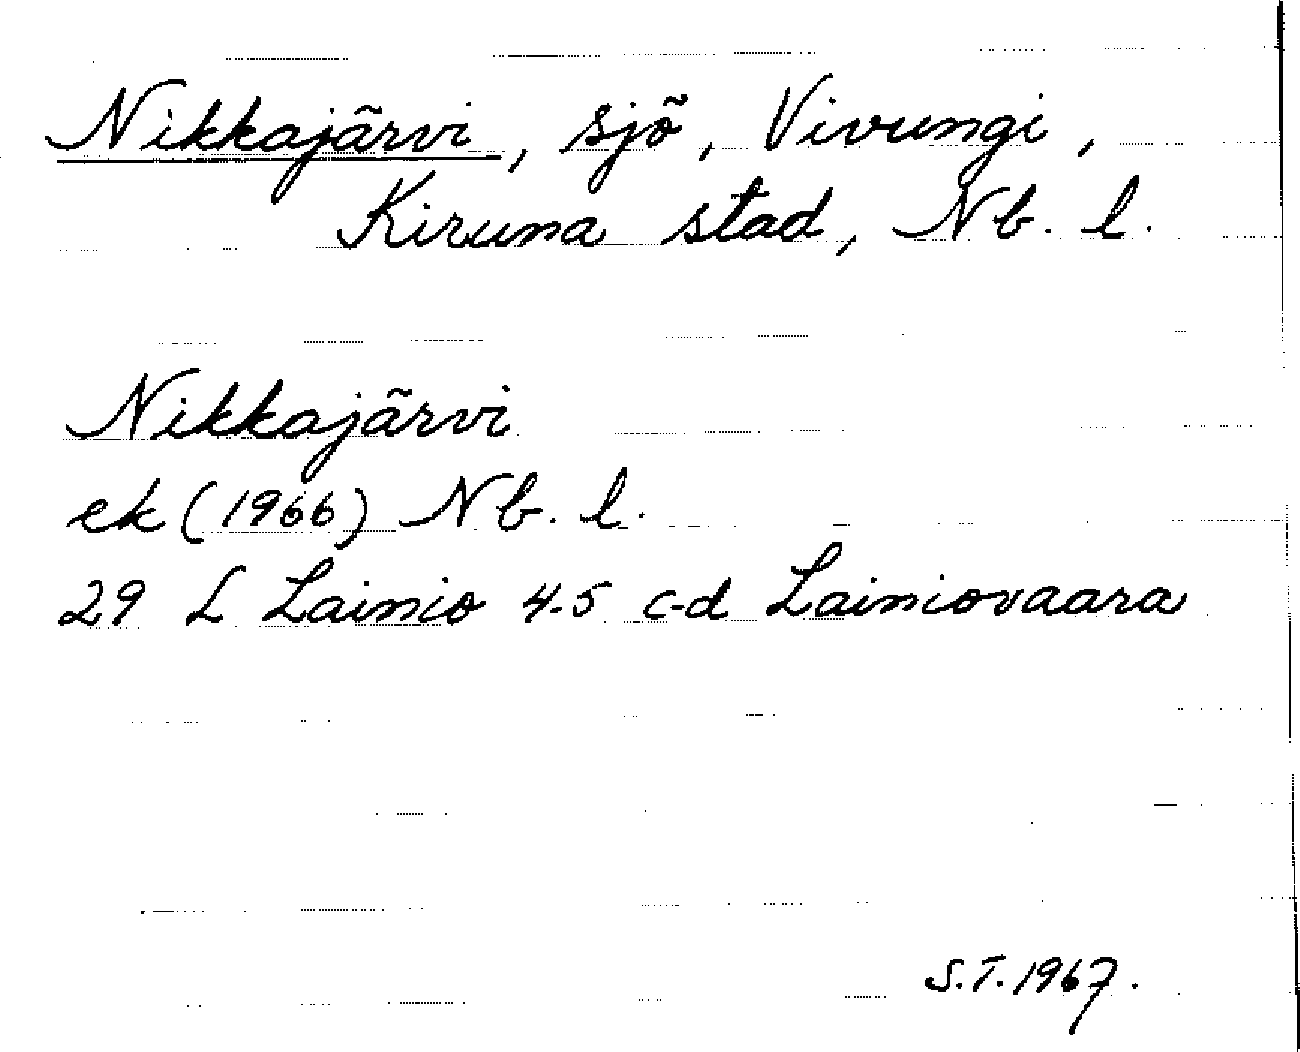 Nikkajärvi, sjö, Vivungi,
Kiruna stad, Nb. l.
Nikkajärvi
ek (1966) Nb. l.
29 L Lainio 4-5 c-d Lainiovaara
S.T. 1967.